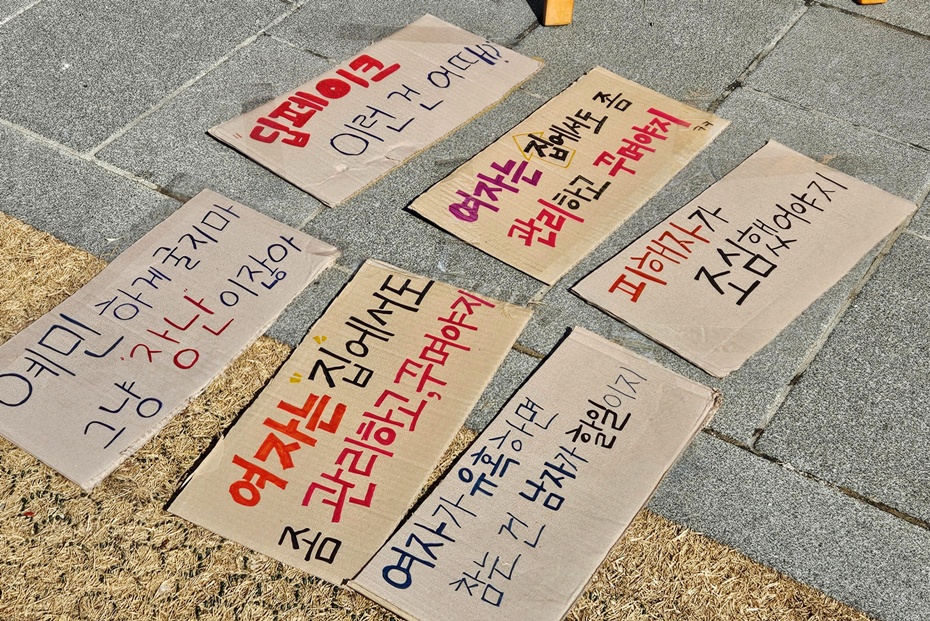 "딥페이크
이런 건 어때?"
여자는 집에서도 좀
관리하고 꾸며야지
피해자가
조심했어야지
예민하게 굴지마
그냥 '장난'이잖아
"여자는" 집에서도
좀 관리하고, 꾸며야지
여자가 유혹하면
참는 건 남자가 할일이지